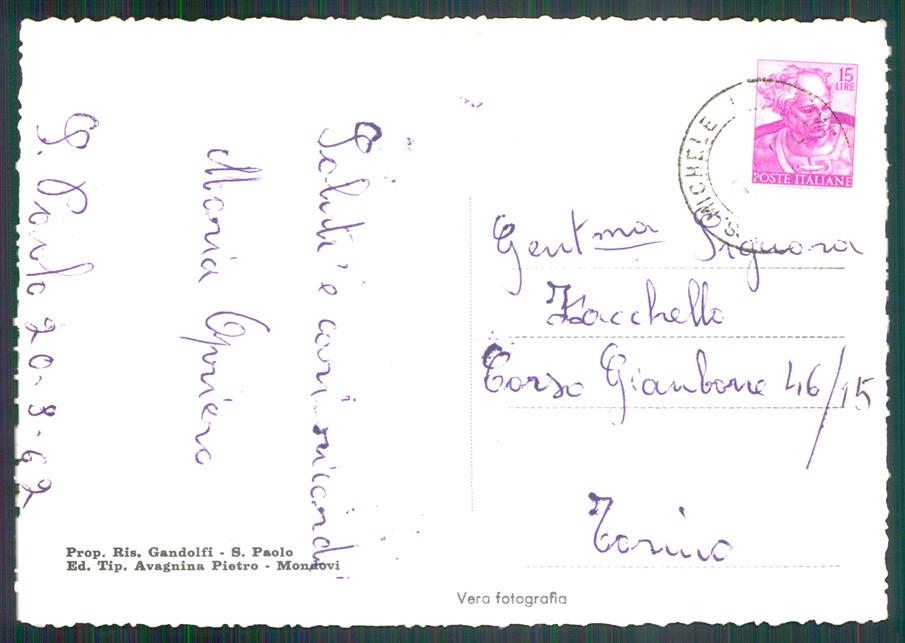 S. Paolo 20-8-62
Saluti e cari ricordi
Maria
Gent.ma Signora
Zacchello
Corso Giambone 46/15
Torino
15
LIRE
POSTE ITALIANE
S. MICHELE
Prop. Ris. Gandolfi - S. Paolo
Ed. Tip. Avagnina Pietro - Mondovì
Vera fotografia